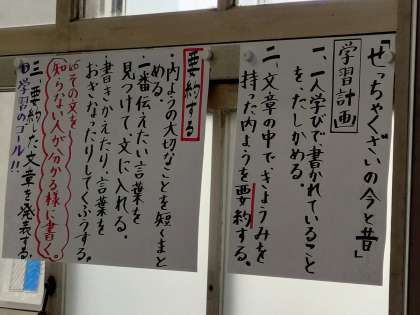 「せっちゃくざいの今と昔」
学習計画
一、一人学びで書かれていること
を、たしかめる。
二、文章の中できょうみを
持った内ようを要約する。
要約する
・内ようの大切なことを短くまと
める。
・一番伝えたい言葉を
見つけて、文に入れる。
・書きかえたり、言葉を
おぎなったりしてくふうする。
その文を
知らない人が分かる様に書く。
三、要約した文章を発表する。
学習のゴール!!